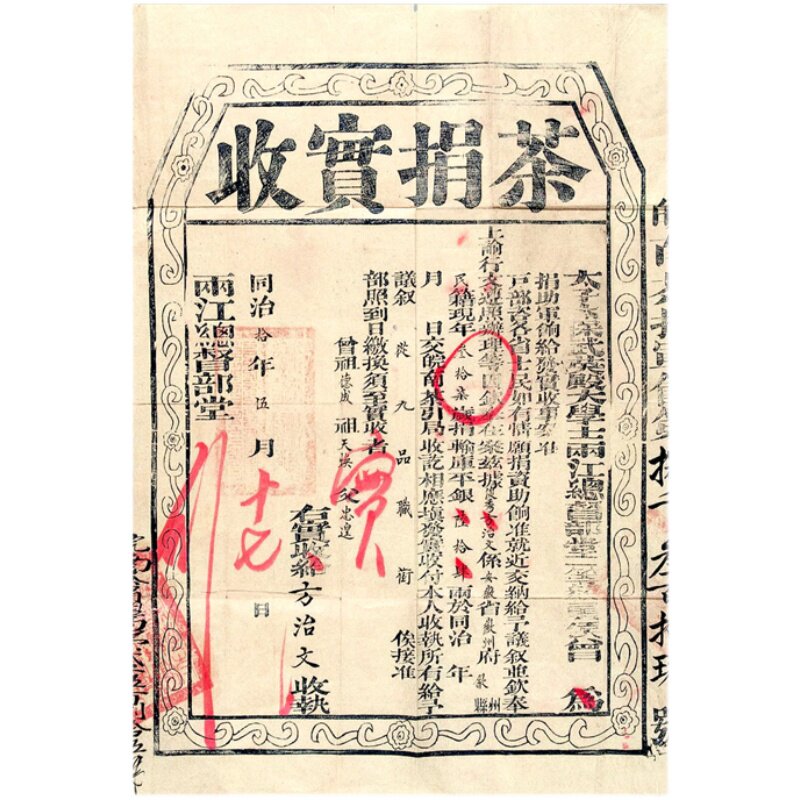 茶捐實收
太子太保武英殿大學士兩江總督部堂一等毅勇侯曾 為
捐助軍餉給發實收事案准
戶部咨各省士民如有情願捐貲助餉准就近交納給予議叙並欽奉
上諭行文遵照辦理等因欽此在案茲據俊秀方治文係安徽省徽州府歙縣
民籍現年叁拾柒歲捐輸庫平銀陸拾肆兩於同治 年
月 日交皖南茶引局收訖相應填發實收付本人收執所有給予
議叙 從九品職銜 俟接准
部照到日繳換須至實收者
曾祖德成 祖天 父忠
右實收給方治文收執
同治拾年伍月十七日
兩江總督部堂
實